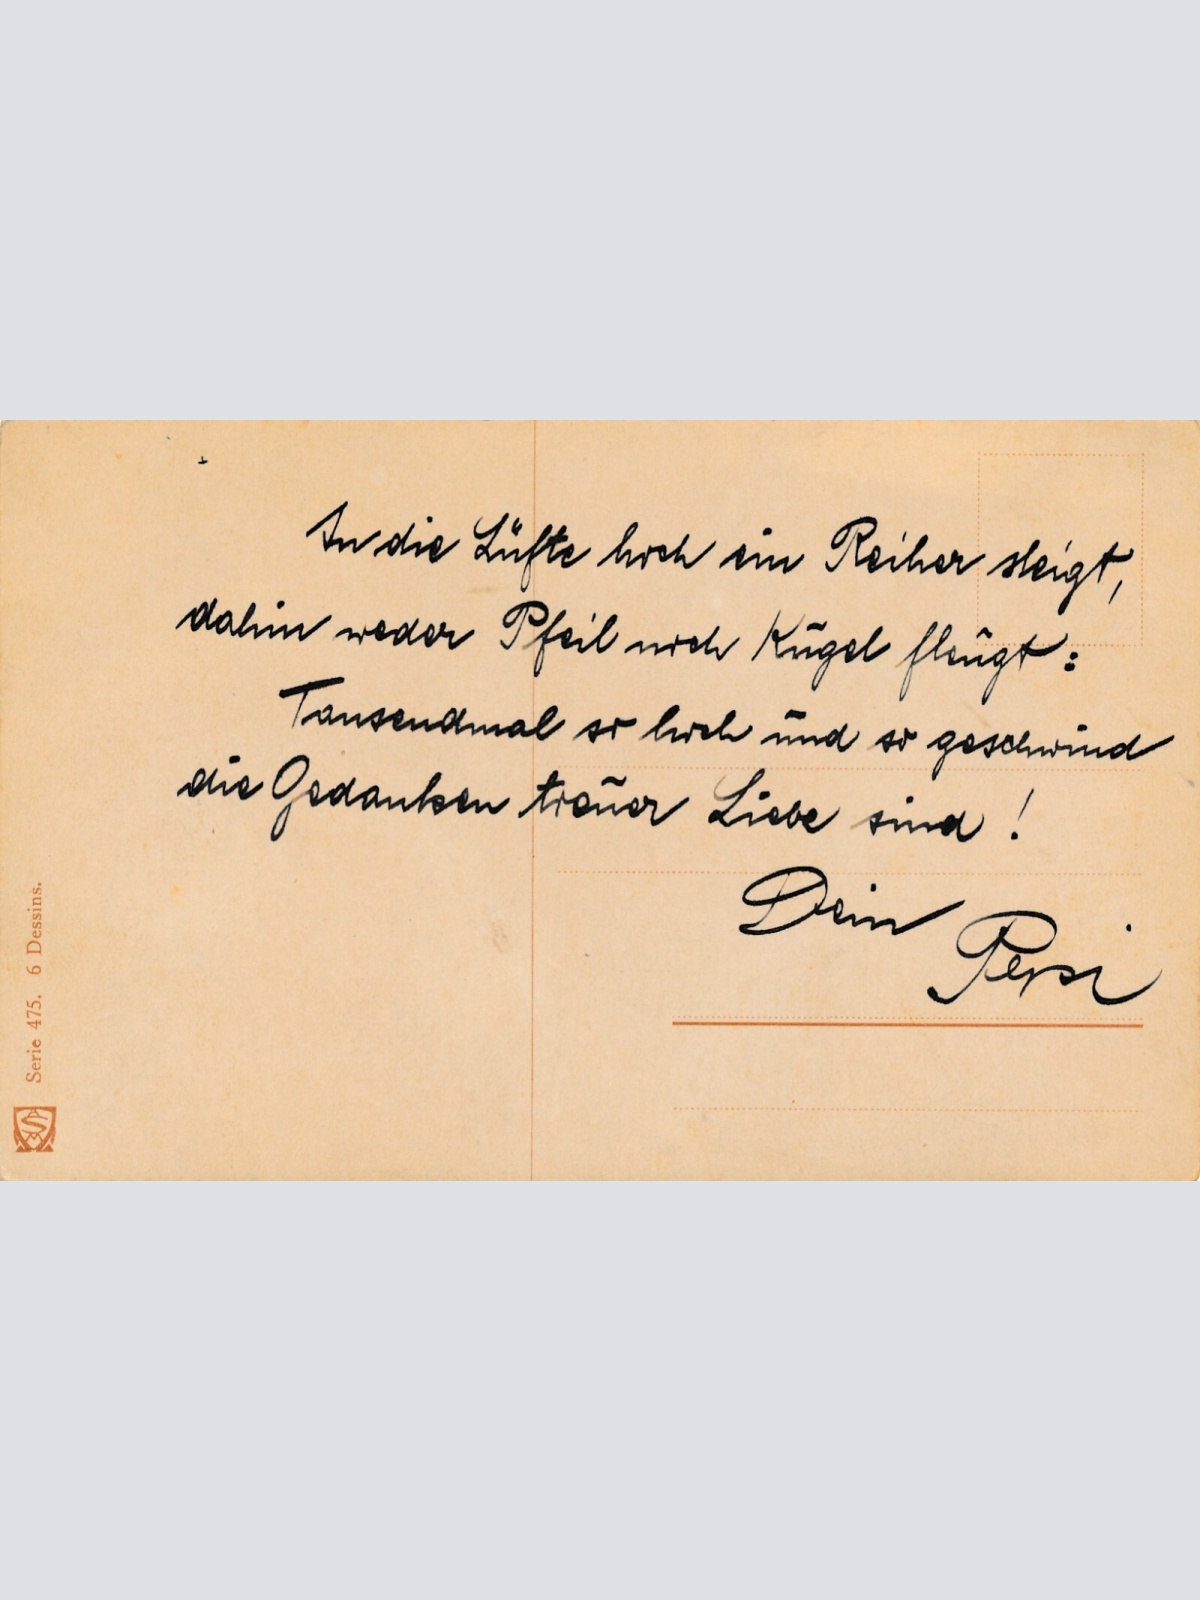 In die Lüfte hoch ein Reiher steigt,
dahin weder Pfeil noch Kūgel fleūgt:
Tausendmal so hoch ūnd so geschwind
die Gedanken treūer Liebe sind!
Dein
Pepsi
Serie 475. 6 Dessins.